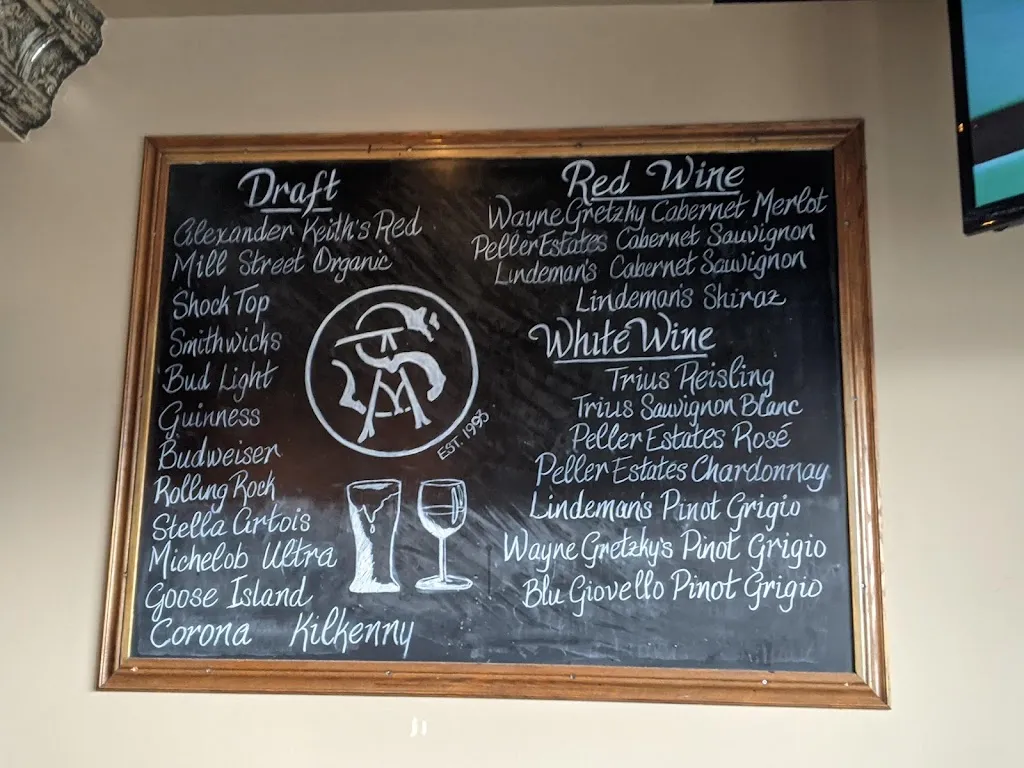 Draft
Alexander Keith's Red
Mill Street Organic
Shock Top
Smithwicks
Bud Light
Guinness
Budweiser
Rolling Rock
Stella Artois
Michelob Ultra
Goose Island
Corona Kilkenny
EST. 1995
Red Wine
Wayne Gretzky Cabernet Merlot
Peller Estates Cabernet Sauvignon
Lindeman's Cabernet Sauvignon
Lindeman's Shiraz
White Wine
Trius Reisling
Trius Sauvignon Blanc
Peller Estates Rosé
Peller Estates Chardonnay
Lindeman's Pinot Grigio
Wayne Gretzky's Pinot Grigio
Blu Giovello Pinot Grigio